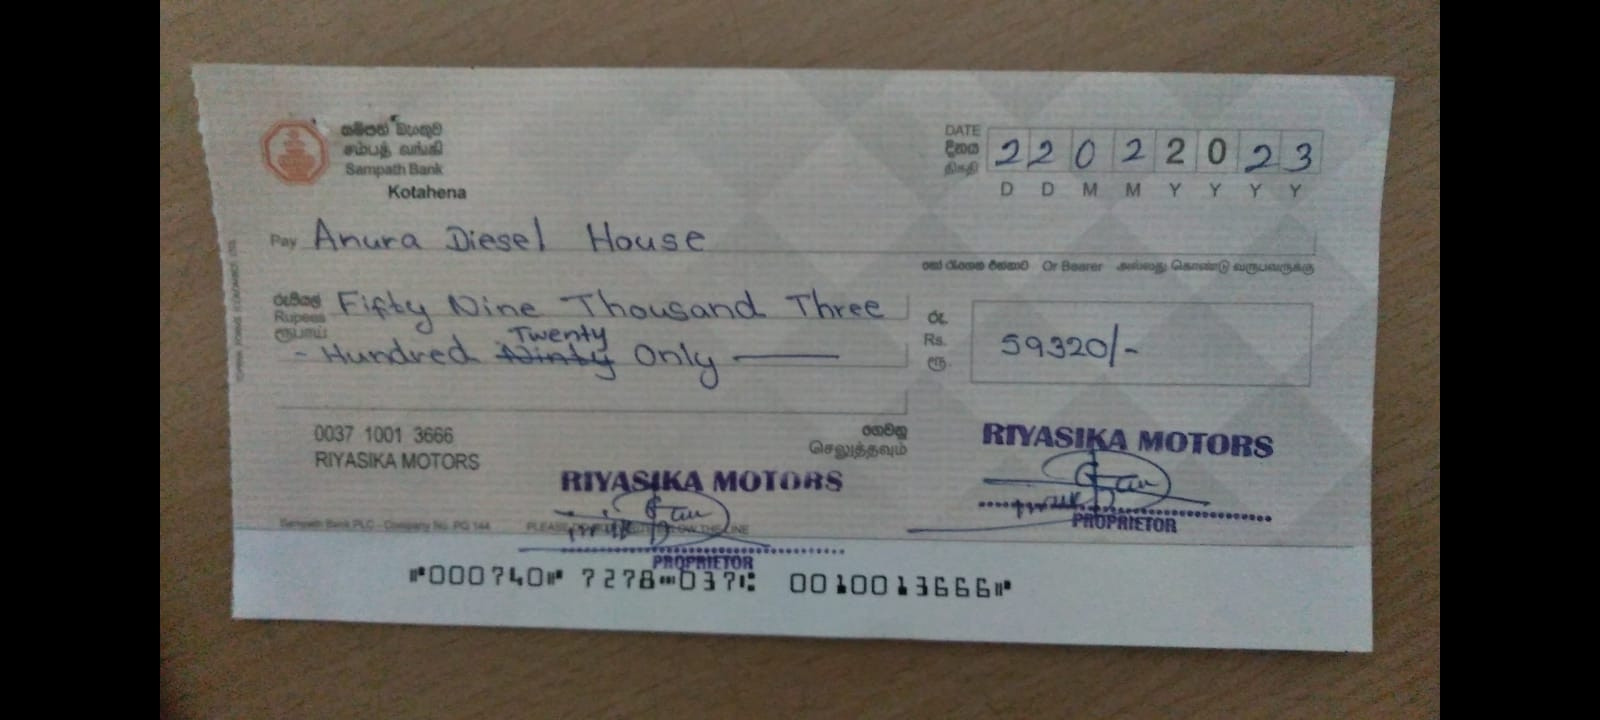 සම්පත් බැංකුව
சம்பத் வங்கி
Sampath Bank
Kotahena
DATE
දිනය
திகதி
2 2 0 2 2 0 2 3
D D M M Y Y Y Y
Pay Anura Diesel House
Or Bearer அல்லது கொண்டு வருபவருக்கு
රුපියල්
Rupees
ரூபாய்
Fifty Nine Thousand Three
Twenty
- Hundred Ninty Only
රු.
Rs.
ரூ.
59320/-
0037 1001 3666
RIYASIKA MOTORS
ගෙවනු
செலுத்தவும்
RIYASIKA MOTORS
PROPRIETOR
RIYASIKA MOTORS
PROPRIETOR
Sampath Bank PLC - Company No. PQ 144
⑈000740⑈ 7278⑉037⑆ 0010013666⑈